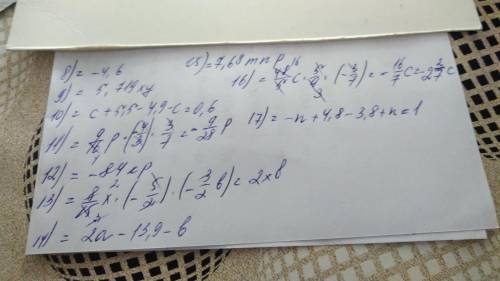 8) = -4,6
9) = 5,719xy
10) = c + 5,5 - 4,9 - c = 0,6
11) = 9/16 p · (-4/3) · 3/7 = -9/28 p
12) = -84кр
13) = 8/15 x · (-5/2) · (-3/2 b) = 2xb
14) = 2a - 13,9 - b
15) = 7,68mnp
16) = 48/5 c · 5/9 · (-3/7) = -16/7 c = -2 2/7 c
17) = -n + 4,8 - 3,8 + n = 1